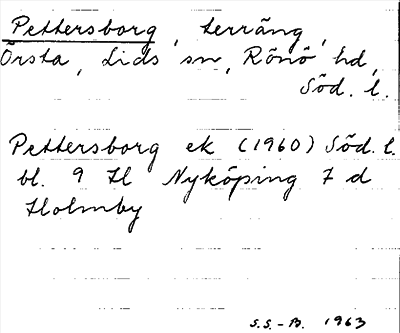 Pettersborg, terräng,
Örsta, Lids sn, Rönö hd,
Söd. l.
Pettersborg ek (1960) Söd. l.
bl. 9 H Nyköping 7 d
Holmby
S.S.-B. 1963